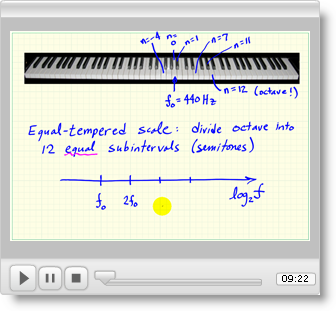 n=-4 n=0 n=1 n=7 n=11
f₀ = 440 Hz n=12 (octave!)
Equal-tempered scale: divide octave into
12 equal subintervals (semitones)
f₀ 2f₀ log₂f
09:22